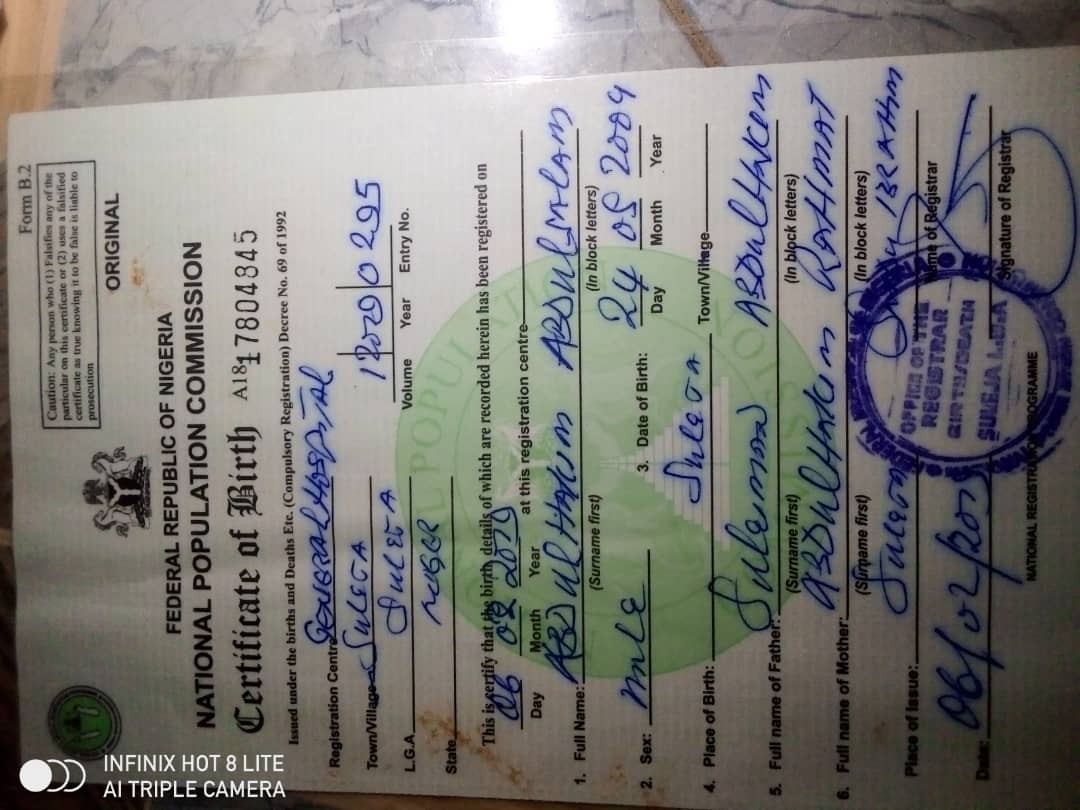 Form B.2
Caution: Any person who (1) Falsifies any of the
particular on this certificate or (2) uses a falsified
certificate as true knowing it to be false is liable to
prosecution
ORIGINAL
FEDERAL REPUBLIC OF NIGERIA
NATIONAL POPULATION COMMISSION
Certificate of Birth A181 7804845
Issued under the births and Deaths Etc. (Compulsory Registration) Decree No. 69 of 1992
Registration Centre GENERAL HOSPITAL
Town/Village SULEJA 1 2009 0295
Volume Year Entry No.
L.G.A SULEJA
State NIGER
This is certify that the birth, details of which are recorded herein has been registered on
06 02 at this registration centre
Day Month Year
1. Full Name: ABDULHAKIM ABDULSALAM
(Surname first) (In block letters)
2. Sex: male 3. Date of Birth: 24 05 2009
Day Month Year
4. Place of Birth: Suleja Town/Village
5. Full name of Father: Sulemon ABDULHAKIM
(Surname first) (In block letters)
6. Full name of Mother: ABDULHAKIM RAHIMAT
(Surname first) (In block letters)
Place of Issue: Suleja IBRAHIM
Name of Registrar
Date: 06/02/
Signature of Registrar
OFFICE OF THE
REGISTRAR
BIRTH/DEATH
SULEJA L.G.A
NATIONAL REGISTRATION PROGRAMME
INFINIX HOT 8 LITE
AI TRIPLE CAMERA